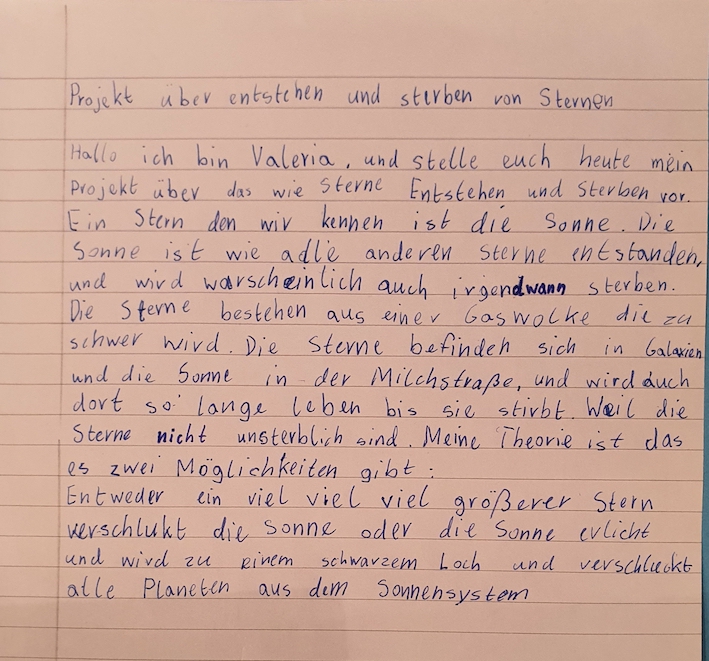 Projekt über entstehen und sterben von Sternen
Hallo ich bin Valeria, und stelle euch heute mein
Projekt über das wie Sterne Entstehen und Sterben vor.
Ein Stern den wir kennen ist die Sonne. Die
Sonne ist wie alle anderen Sterne entstanden,
und wird warscheinlich auch irgendwann sterben.
Die Sterne bestehen aus einer Gaswolke die zu
schwer wird. Die Sterne befinden sich in Galaxien
und die Sonne in der Milchstraße, und wird auch
dort so lange leben bis sie stirbt. Weil die
Sterne nicht unsterblich sind. Meine Theorie ist das
es zwei Möglichkeiten gibt:
Entweder ein viel viel viel größerer Stern
verschlukt die Sonne oder die Sonne erlicht
und wird zu einem schwarzem Loch und verschluckt
alle Planeten aus dem Sonnensystem